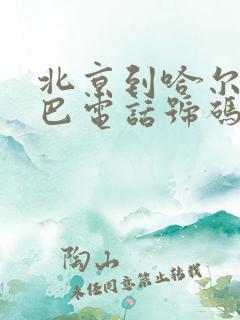 北京到哈尔
巴電話號碼
陶山
未任同意禁止转载